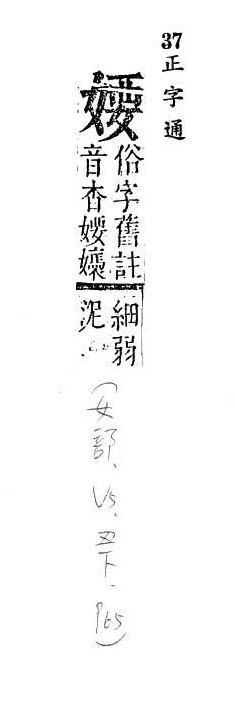 37 正字通
婹
俗字舊註
音杳婹嬝
細弱
泥
(女部、V5、丑下、P65)